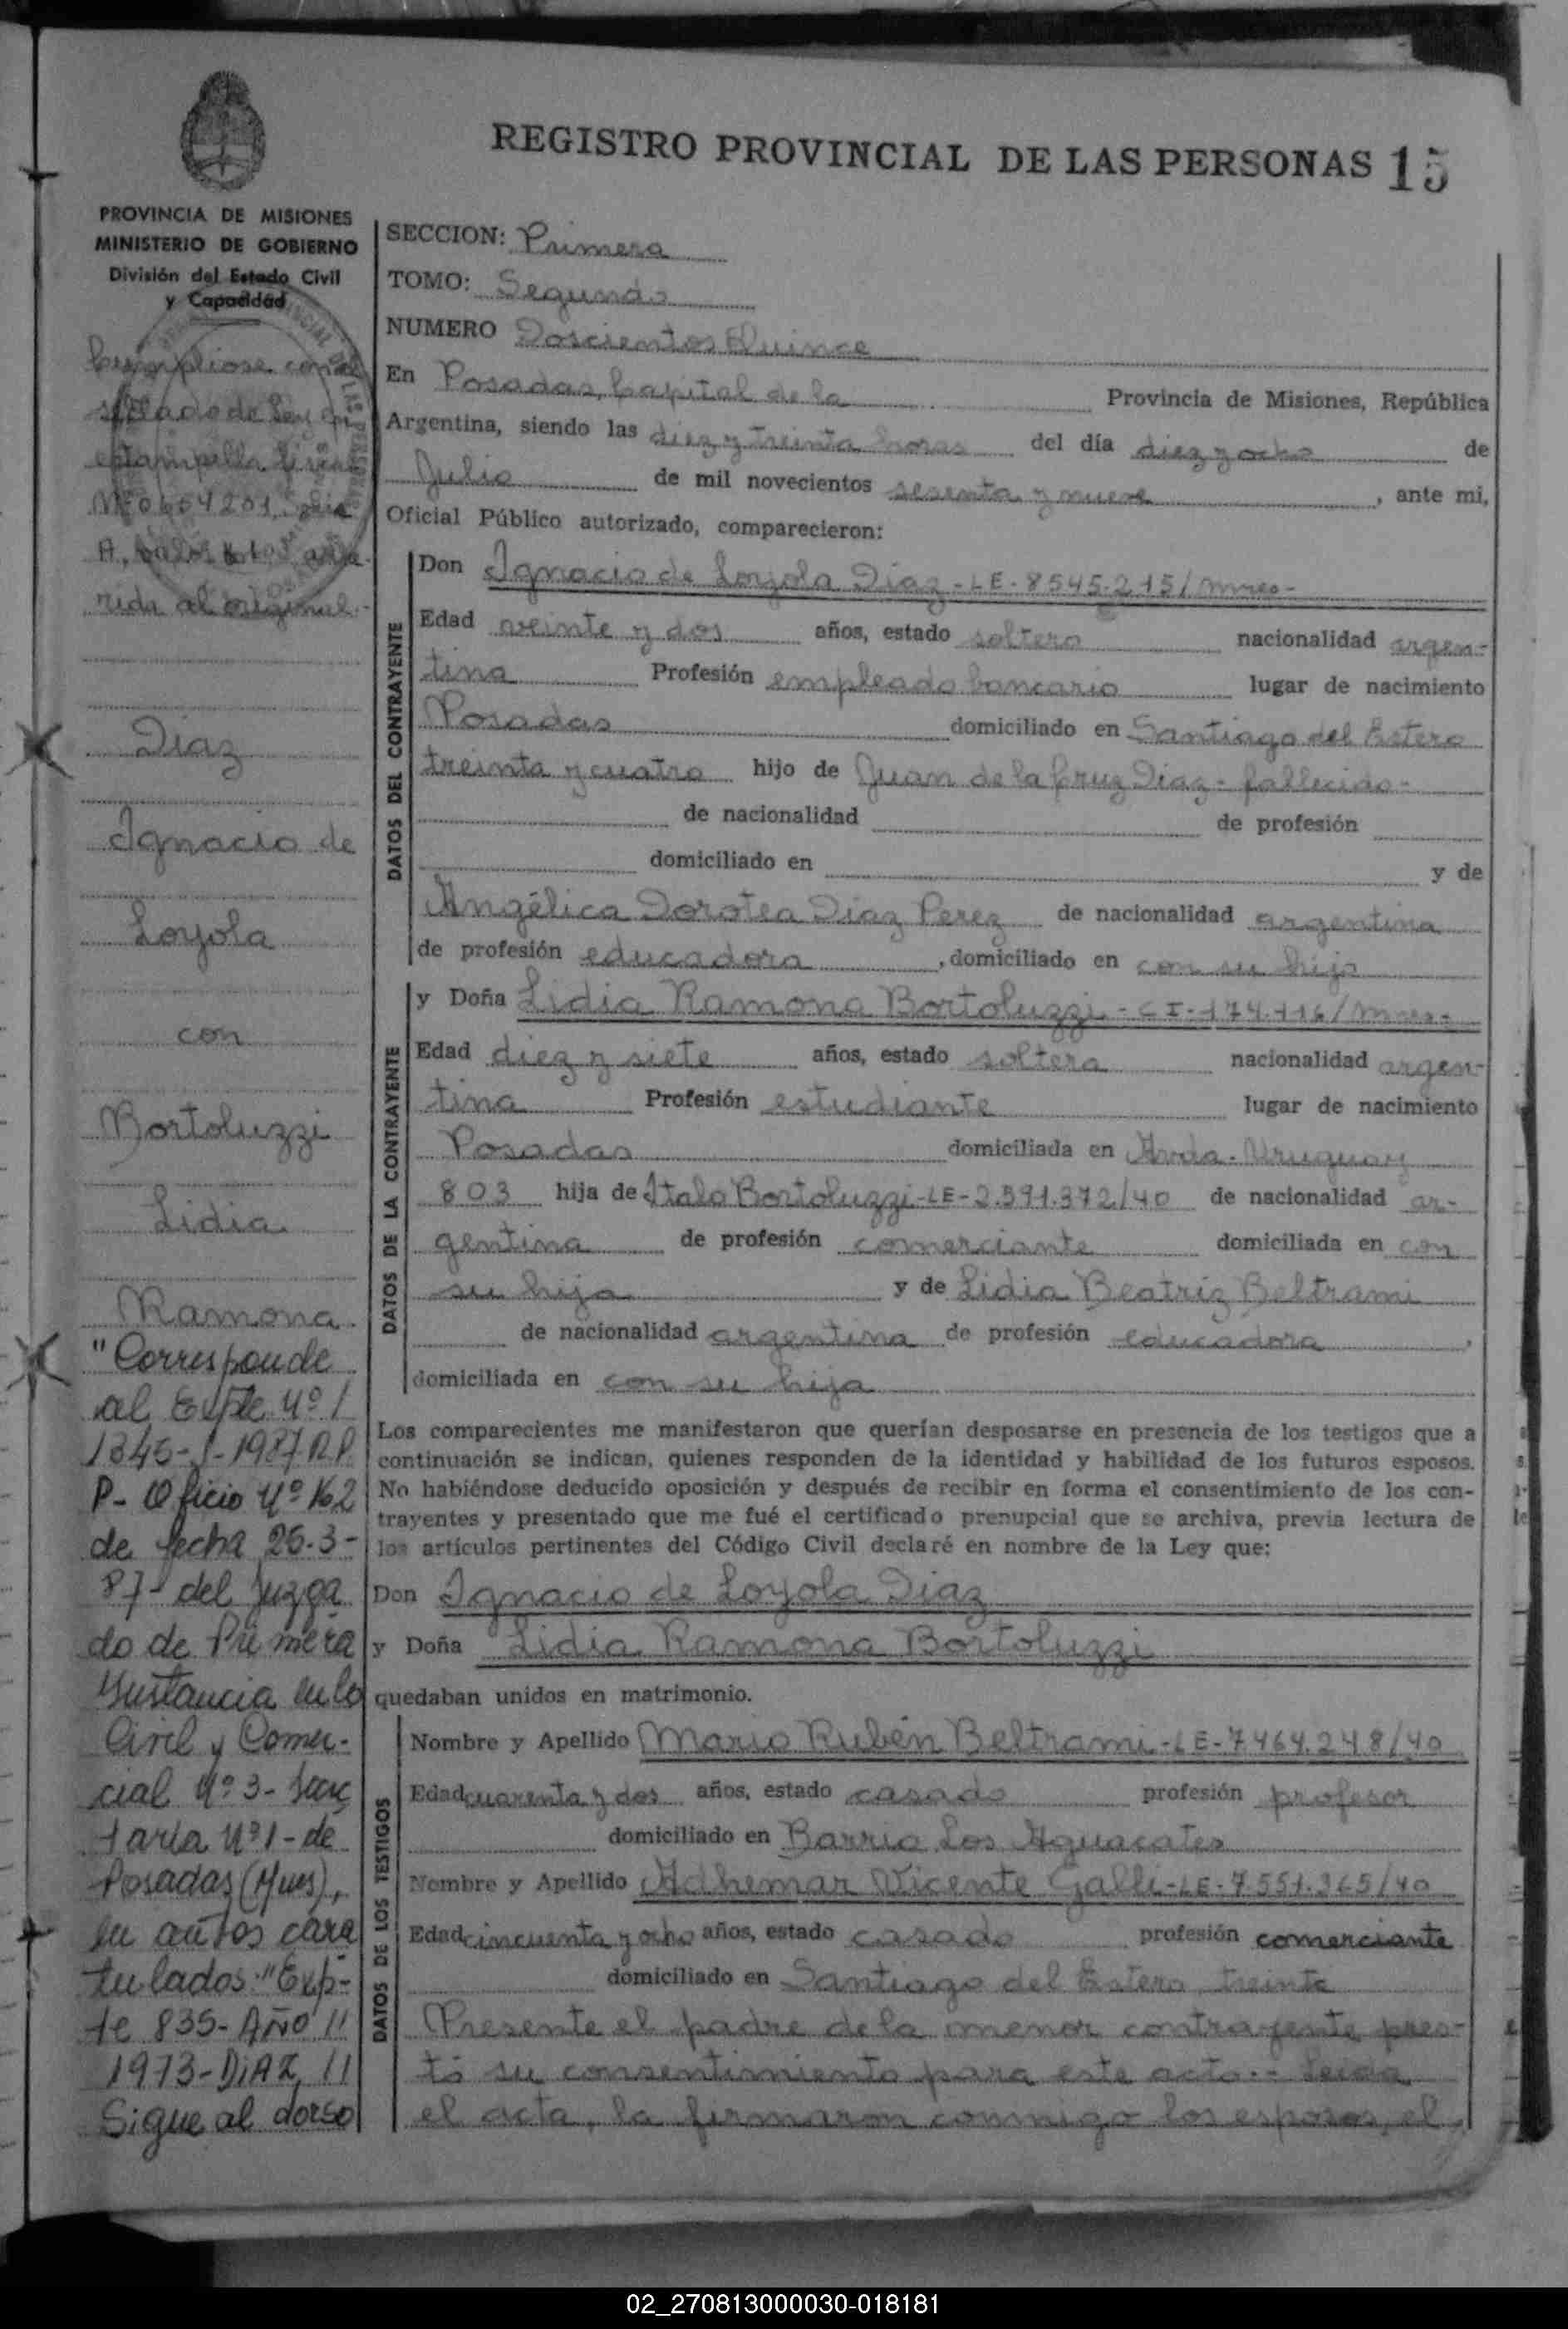 REGISTRO PROVINCIAL DE LAS PERSONAS 15
PROVINCIA DE MISIONES
MINISTERIO DE GOBIERNO
División del Estado Civil
y Capacidad
Cumpliose con el
sellado de Ley en
estampilla fiscal
Nº 0604201, Serie
A, valor adhe-
rida al original.-
Diaz
Ignacio de
Loyola
con
Bortoluzzi
Lidia
Ramona
"Corresponde
al Expte Nº /
1345-J-1987 R.P.
P- Oficio Nº 162
de fecha 26-3-
87- del Juzga
do de Primera
Instancia en lo
Civil y Comer-
cial Nº 3- Secre
taría Nº 1- de
Posadas (Mnes),
en autos cara
tulados: "Exp-
te 835- AÑO //
1973- DIAZ, //
Sigue al dorso
SECCION: Primera
TOMO: Segundo
NUMERO Doscientos Quince
En Posadas, Capital de la Provincia de Misiones, República
Argentina, siendo las diez y treinta horas del día diez y ocho de
Julio de mil novecientos sesenta y nueve, ante mi,
Oficial Público autorizado, comparecieron:
DATOS DEL CONTRAYENTE
Don Ignacio de Loyola Diaz - LE - 8545.215/Mnes -
Edad veinte y dos años, estado soltero nacionalidad argen-
tina Profesión empleado bancario lugar de nacimiento
Posadas domiciliado en Santiago del Estero
treinta y cuatro hijo de Juan de la Cruz Diaz - fallecido -
de nacionalidad de profesión
domiciliado en y de
Angélica Dorotea Diaz Perez de nacionalidad argentina
de profesión educadora, domiciliado en con su hijo
DATOS DE LA CONTRAYENTE
y Doña Lidia Ramona Bortoluzzi - CI - 174.116/Mnes -
Edad diez y siete años, estado soltera nacionalidad argen-
tina Profesión estudiante lugar de nacimiento
Posadas domiciliada en Avda. Uruguay
803 hija de Italo Bortoluzzi - LE - 2.591.372/40 de nacionalidad ar-
gentina de profesión comerciante domiciliada en con
su hija y de Lidia Beatriz Beltrami
de nacionalidad argentina de profesión educadora,
domiciliada en con su hija
Los comparecientes me manifestaron que querían desposarse en presencia de los testigos que a
continuación se indican, quienes responden de la identidad y habilidad de los futuros esposos.
No habiéndose deducido oposición y después de recibir en forma el consentimiento de los con-
trayentes y presentado que me fué el certificado prenupcial que se archiva, previa lectura de
los artículos pertinentes del Código Civil declaré en nombre de la Ley que:
Don Ignacio de Loyola Diaz
y Doña Lidia Ramona Bortoluzzi
quedaban unidos en matrimonio.
DATOS DE LOS TESTIGOS
Nombre y Apellido Mario Rubén Beltrami - LE - 7464.248/40
Edad cuarenta y dos años, estado casado profesión profesor
domiciliado en Barrio Los Aguacates
Nombre y Apellido Adhemar Vicente Galli - LE - 7.551.365/40
Edad cincuenta y ocho años, estado casado profesión comerciante
domiciliado en Santiago del Estero treinta
Presente el padre de la menor contrayente pres-
tó su consentimiento para este acto.- Leida
el acta, la firmaron conmigo los esposos, el
02_270813000030-018181